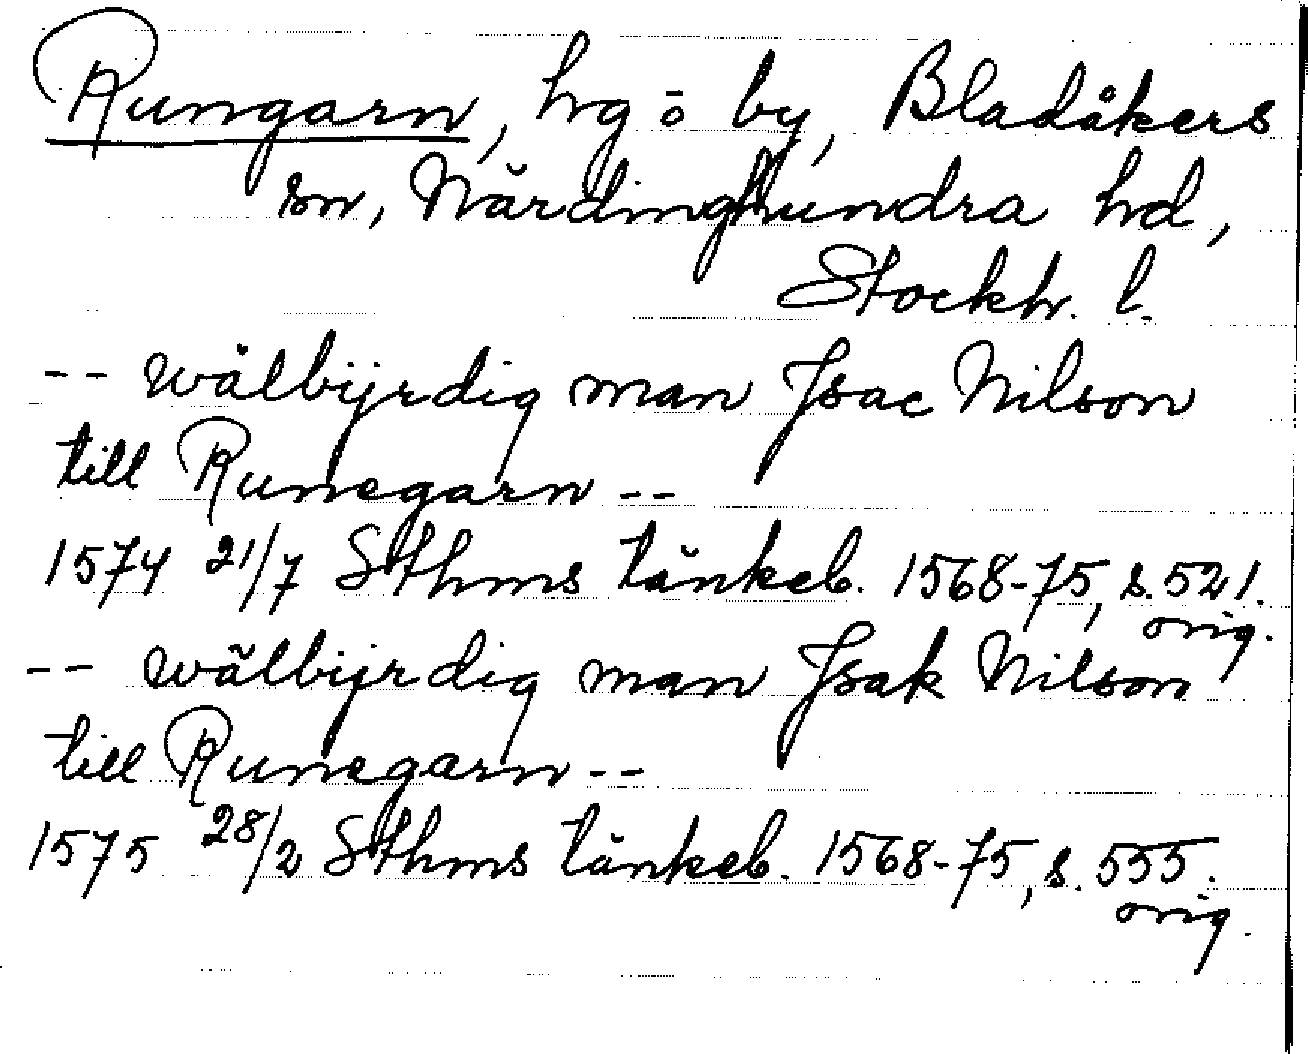 Rungarn, hg o by, Bladåkers
sn, Närdinghundra hd,
Stockh. l.
-- wälbijrdig man Jsac Nilson
till Runegarn --
1574 21/7 Sthms tänkeb. 1568-75, s. 521.
orig.
-- wälbijrdig man Jsak Nilson
till Runegarn --
1575 28/2 Sthms tänkeb. 1568-75, s. 555.
orig.